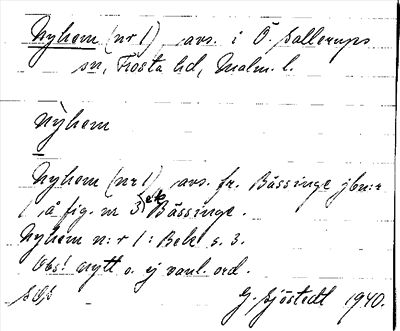 Nyhem (nr 1), avs. i Ö. Sallerups
sn, Frosta hd, Malm. l.
Nỳhem
Nyhem (nr 1) avs. fr. Bässinge jbn:r
1 å fig. nr 3 etc Bässinge.
Nyhem n:r 1: Beb. s. 3.
Obs! nytt o. ej vanl. ord.
G. Sjöstedt 1940.